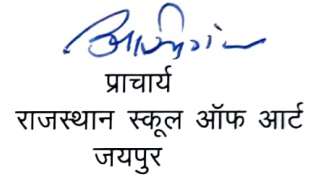 प्राचार्य
राजस्थान स्कूल ऑफ आर्ट
जयपुर